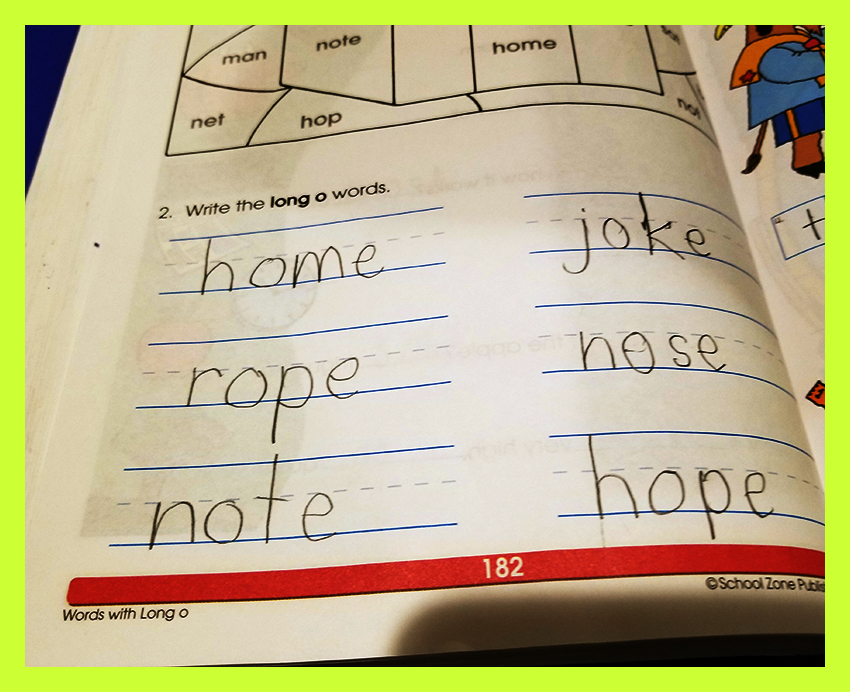 man note home
net hop
2. Write the long o words.
home joke
rope nose
note hope
182
Words with Long o ©School Zone Publis